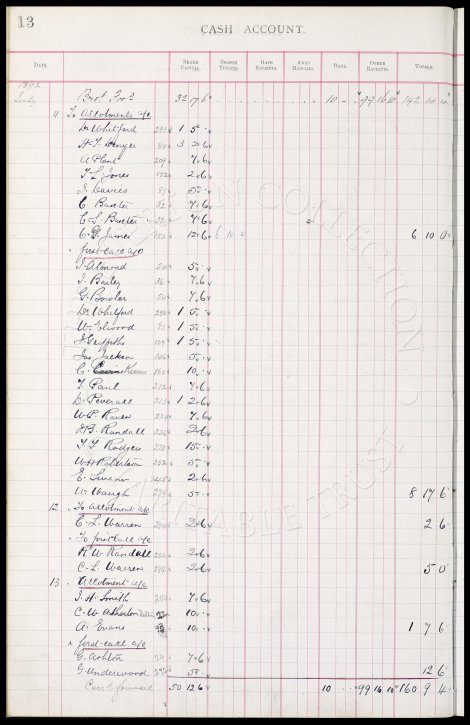 13
CASH ACCOUNT.
DATE. SHARE CAPITAL. SEASON TICKETS. GATE RECEIPTS. AWAY MATCHES. BANK. OTHER RECEIPTS. TOTALS.
1892
July Brot Ford 32 17 6 10 99 16 10 142 14 4
11 To Allotments a/c
Dr Whitford 293 1 5
H. T. 84 3 2 6
A Plant 209 7.6
T L Jones 152 2.6
J. Davies 5
C. Baxter 32 7.6
C L Baxter 7.6
C. G. James 153 12.6 6 10 0 6 10 0
first call a/c
J. Almond 5
J. Bailey 7.6
G. Bowler 7.6
Dr Whitford 290 1 5
W. Elwood 1 5
J Griffiths 109 1 5
Jas Jackson 146 5
C. Kearns 160 10
T. Paul 212 7.6
D. Peverall 213 1 2.6
W. P. Raven 7.6
J. B. Randall 226 2.6
T. F. Rodgers 228 15
W H Robertson 232 5
E. Swann 268 2.6
W. Waugh 5 8 17 6
12 To allotment a/c
C. L. Warren 2.6 2 6
To first call a/c
R W Randall 2.6
C. L. Warren 2.6 5 0
13 Allotment a/c
J. H. Smith 7.6
C. W. Atherton 10
A. Evans 10 1 7 6
first call a/c
G. Ashton 24 7.6
G. Underwood 5 12 6
Carrd forward 50 12 6 10 99 16 10 160 9 4
COLLECTION
CHARITABLE TRUST